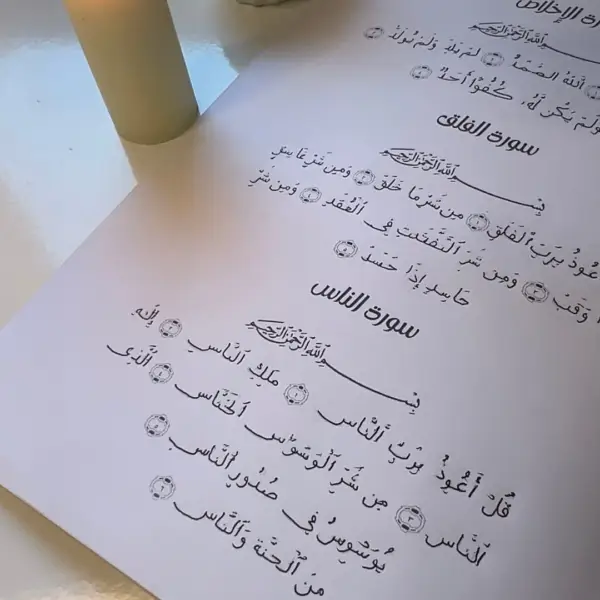 سورة الإخلاص
بِسْمِ اللَّهِ الرَّحْمَٰنِ الرَّحِيمِ
١ اللَّهُ الصَّمَدُ ٢ لَمْ يَلِدْ وَلَمْ يُولَدْ ٣
وَلَمْ يَكُن لَّهُ كُفُوًا أَحَدٌ ٤
سورة الفلق
بِسْمِ اللَّهِ الرَّحْمَٰنِ الرَّحِيمِ
أَعُوذُ بِرَبِّ ٱلْفَلَقِ ١ مِن شَرِّ مَا خَلَقَ ٢ وَمِن شَرِّ غَاسِقٍ
وَقَبَ ٣ وَمِن شَرِّ ٱلنَّفَّٰثَٰتِ فِي ٱلْعُقَدِ ٤ وَمِن شَرِّ
حَاسِدٍ إِذَا حَسَدَ ٥
سورة الناس
بِسْمِ اللَّهِ الرَّحْمَٰنِ الرَّحِيمِ
قُلْ أَعُوذُ بِرَبِّ ٱلنَّاسِ ١ مَلِكِ ٱلنَّاسِ ٢ إِلَٰهِ
ٱلنَّاسِ ٣ مِن شَرِّ ٱلْوَسْوَاسِ ٱلْخَنَّاسِ ٤ ٱلَّذِى
يُوَسْوِسُ فِي صُدُورِ ٱلنَّاسِ ٥
مِنَ ٱلْجِنَّةِ وَٱلنَّاسِ ٦